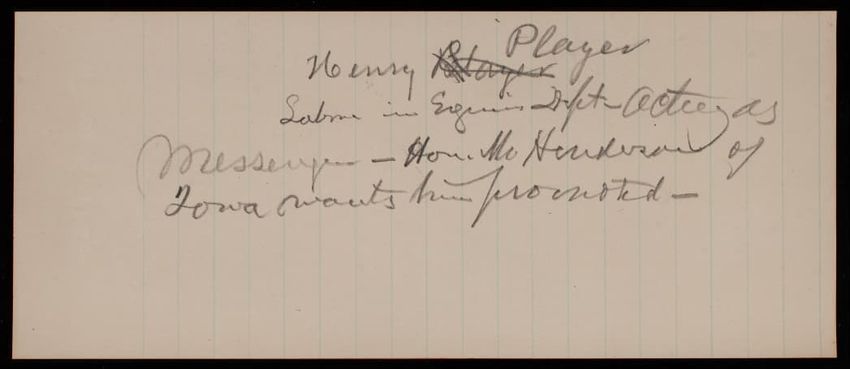 Player
Henry Player
Labor in Engin's Dept - Acting as
Messenger - Hon. Mr Henderson of
Iowa wants him promoted -